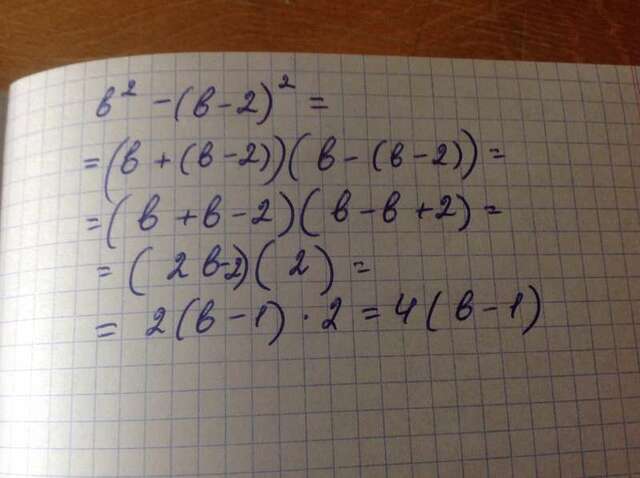 b² - (b - 2)² =
= (b + (b - 2)) (b - (b - 2)) =
= (b + b - 2) (b - b + 2) =
= (2b-2) (2) =
= 2 (b - 1) · 2 = 4 (b - 1)